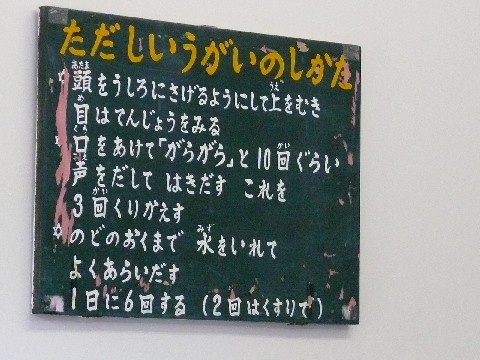 ただしいうがいのしかた
☆頭をうしろにさげるようにして上をむき
目はてんじょうをみる
☆口をあけて「がらがら」と10回ぐらい
声をだして はきだす これを
3回くりかえす
☆のどのおくまで 水をいれて
よくあらいだす
1日に6回する (2回はくすりで)